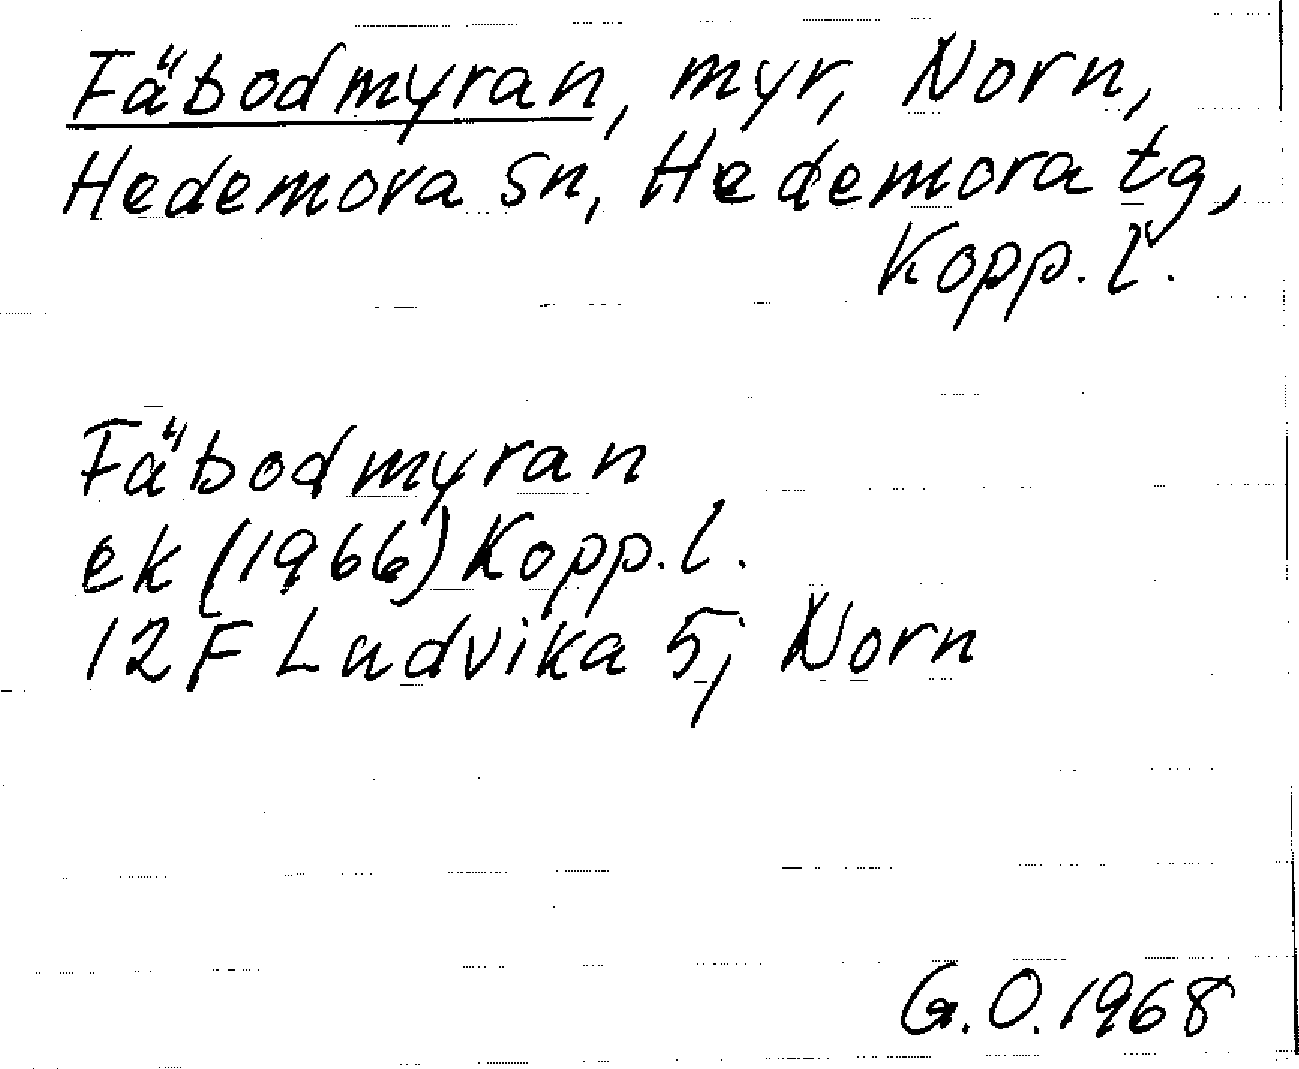 Fäbodmyran, myr, Norn,
Hedemora sn, Hedemora tg,
Kopp. l.
Fäbodmyran
ek (1966) Kopp. l.
12 F Ludvika 5j Norn
G.O. 1968